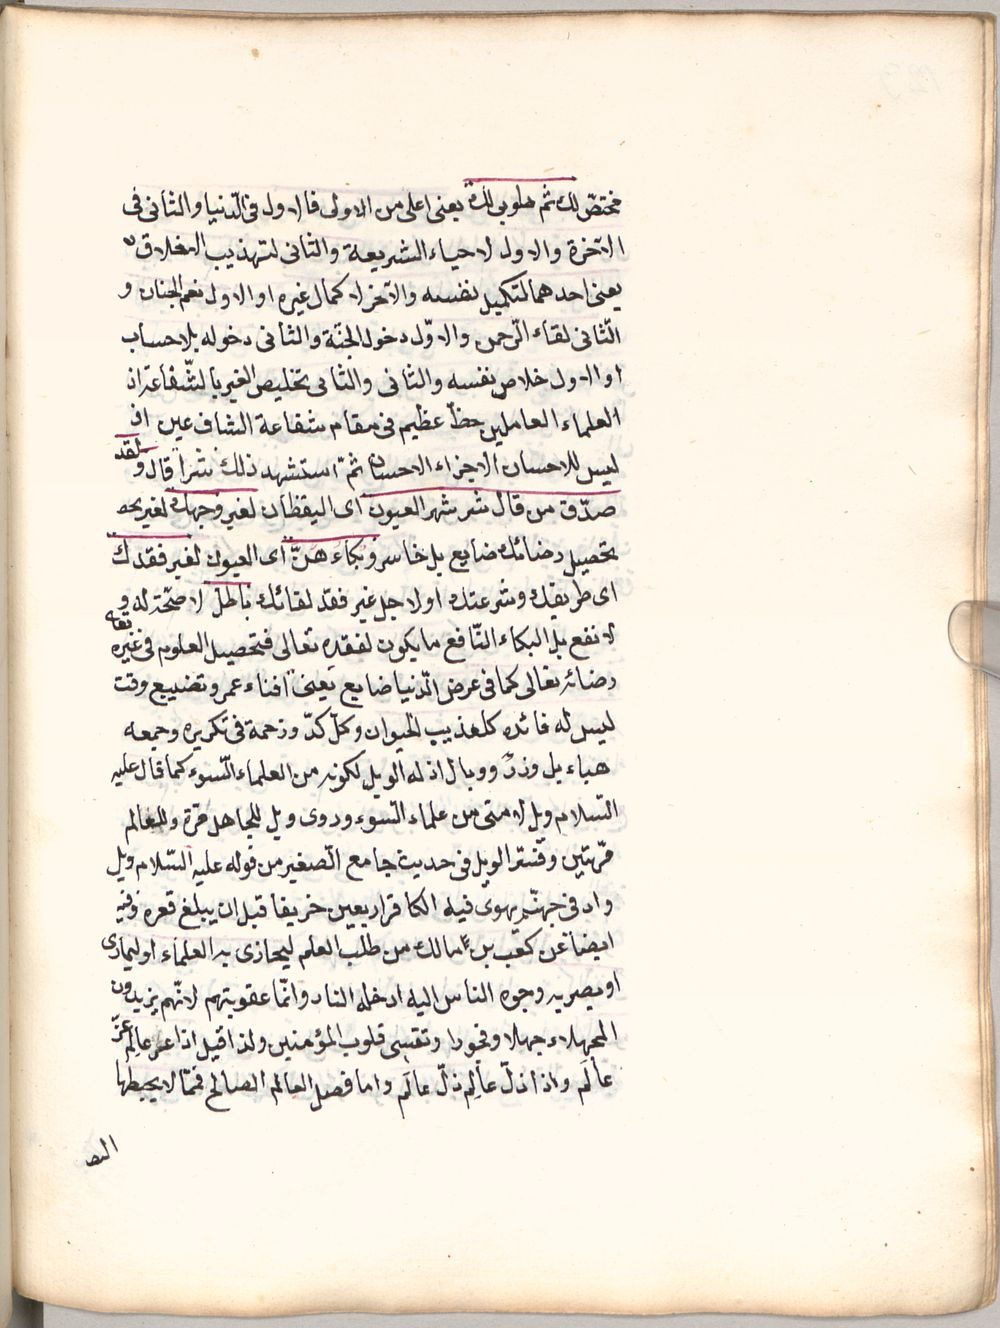 فختصّ لك ثم طوبى لك يعنى اعلى من الاولى فالاول فى الدّنيا والثانى فى
الآخرة والاول لاحياء الشريعة والثانى لتهذيب الاخلاق
يعنى احدهما لتكميل نفسه والآخر لاكمال غيره او الاول نعم الجنان و
الثّانى لقاء الرّحمن والاوّل دخول الجنّة والثانى دخوله بلا حساب
او الاول خلاص نفسه والثانى والثانى تخليص الغير بالشّفاعة اذ
العلماء العاملين حظّ عظيم فى مقام شفاعة الشافعين اذ
ليس للاحسان الاجزاء الاحسان ثمّ استشهد ذلك شعرا قال ولقد
صدّق من قال شعر شهر العيون اى اليقظان لغير وجهك لغير
تحصيل رضائك ضايع بل خاسر وبكاء هنّ اى العيون لغير فقدك
اى طريقك وشرعتك او لاجل غير فقد لقائك باطل لا صحّة له و
لا نفع بل البكاء النّافع ما يكون لفقده تعالى فتحصيل العلوم فى غيره
رضائه تعالى كما فى عرض الدّنيا ضايع يعنى افناء عمر وتضييع وقت
ليس له فائده كتعذيب الحيوان وكلّ كدّ وزحمة فى تكريره وجمعه
هباء بل وزرٌ ووبال اذ له الويل لكونه من العلماء السّوء كما قال عليه
السّلام ويل لامتى من علماء السّوء وروى ويل للجاهل مرّة وللعالم
مرّتين وفسّر الويل فى حديث جامع الصّغير من قوله عليه السّلام ويل
واد فى جهنّم يهوى فيه الكافر اربعين خريفا قبل ان يبلغ قعره وفيه
ايضا عن كعب بن مالك من طلب العلم ليجازى به العلماء او ليمارى
او يصرف به وجوه الناس اليه ادخله النار وانّما عقوبتهم لانّهم يزيدون
الجهلاء جهلا وفجورا وتقسى قلوب المؤمنين ولذا قيل اذا عزّ عالِم عزّ
عالَم واذا ذلّ عالِم ذلّ عالَم واما فضل العالم الصالح فممّا لا يحيطها